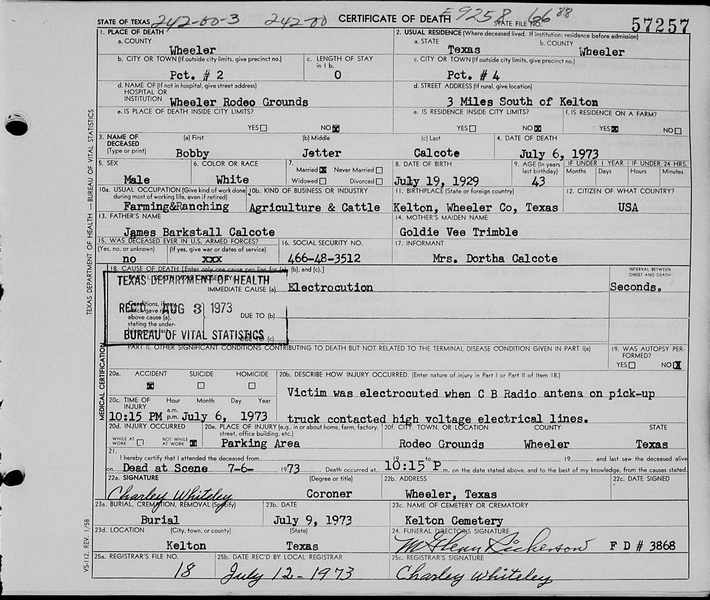 STATE OF TEXAS 242-00-3 242-00 CERTIFICATE OF DEATH STATE FILE NO. 57257
1. PLACE OF DEATH 2. USUAL RESIDENCE (Where deceased lived. If institution: residence before admission)
a. COUNTY a. STATE b. COUNTY
Wheeler Texas Wheeler
b. CITY OR TOWN (If outside city limits, give precinct no.) c. LENGTH OF STAY in 1 b. c. CITY OR TOWN (If outside city limits, give precinct no.)
Pct. # 2 0 Pct. # 4
d. NAME OF (If not in hospital, give street address) HOSPITAL OR INSTITUTION d. STREET ADDRESS (If rural, give location)
Wheeler Rodeo Grounds 3 Miles South of Kelton
e. IS PLACE OF DEATH INSIDE CITY LIMITS? e. IS RESIDENCE INSIDE CITY LIMITS? f. IS RESIDENCE ON A FARM?
YES NO YES NO YES NO
3. NAME OF DECEASED (Type or print) (a) First (b) Middle (c) Last 4. DATE OF DEATH
Bobby Jetter Calcote July 6, 1973
5. SEX 6. COLOR OR RACE 7. Married Never Married Widowed Divorced 8. DATE OF BIRTH 9. AGE (In years last birthday) IF UNDER 1 YEAR IF UNDER 24 HRS.
Months Days Hours Minutes
Male White July 19, 1929 43
10a. USUAL OCCUPATION (Give kind of work done during most of working life, even if retired) 10b. KIND OF BUSINESS OR INDUSTRY 11. BIRTHPLACE (State or foreign country) 12. CITIZEN OF WHAT COUNTRY?
Farming&Ranching Agriculture & Cattle Kelton, Wheeler Co, Texas USA
13. FATHER'S NAME 14. MOTHER'S MAIDEN NAME
James Barkstall Calcote Goldie Vee Trimble
15. WAS DECEASED EVER IN U.S. ARMED FORCES? 16. SOCIAL SECURITY NO. 17. INFORMANT
(Yes, no, or unknown) (If yes, give war or dates of service)
no xxx 466-48-3512 Mrs. Dortha Calcote
18. CAUSE OF DEATH [Enter only one cause per line for (a), (b), and (c).] INTERVAL BETWEEN ONSET AND DEATH
IMMEDIATE CAUSE (a) Electrocution Seconds.
TEXAS DEPARTMENT OF HEALTH
REC'D AUG 3 1973
BUREAU OF VITAL STATISTICS
above cause (a), stating the under-
DUE TO (b)
DUE TO (c)
PART II. OTHER SIGNIFICANT CONDITIONS CONTRIBUTING TO DEATH BUT NOT RELATED TO THE TERMINAL DISEASE CONDITION GIVEN IN PART I(a) 19. WAS AUTOPSY PERFORMED?
YES NO
20a. ACCIDENT SUICIDE HOMICIDE 20b. DESCRIBE HOW INJURY OCCURRED. (Enter nature of injury in Part I or Part II of Item 18.)
Victim was electrocuted when C B Radio antena on pick-up
20c. TIME OF INJURY Hour Month Day Year
a.m. p.m.
10:15 PM July 6, 1973 truck contacted high voltage electrical lines.
20d. INJURY OCCURRED 20e. PLACE OF INJURY (e.g., in or about home, farm, factory, street, office building, etc.) 20f. CITY, TOWN, OR LOCATION COUNTY STATE
WHILE AT WORK NOT WHILE AT WORK
Parking Area Rodeo Grounds Wheeler Texas
21. I hereby certify that I attended the deceased from 19 to 19 and last saw the deceased alive
on Dead at Scene 7-6- 1973 Death occurred at 10:15 P m. on the date stated above, and to the best of my knowledge, from the causes stated.
22a. SIGNATURE (Degree or title) 22b. ADDRESS 22c. DATE SIGNED
Charley Whiteley Coroner Wheeler, Texas
23a. BURIAL, CREMATION, REMOVAL (Specify) 23b. DATE 23c. NAME OF CEMETERY OR CREMATORY
Burial July 9, 1973 Kelton Cemetery
23d. LOCATION (City, town, or county) (State) 24. FUNERAL DIRECTOR'S SIGNATURE
Kelton Texas F D # 3868
25a. REGISTRAR'S FILE NO. 25b. DATE REC'D BY LOCAL REGISTRAR 25c. REGISTRAR'S SIGNATURE
18 July 12-1973 Charley Whiteley
TEXAS DEPARTMENT OF HEALTH—BUREAU OF VITAL STATISTICS
MEDICAL CERTIFICATION
VS-112, REV. 1/58